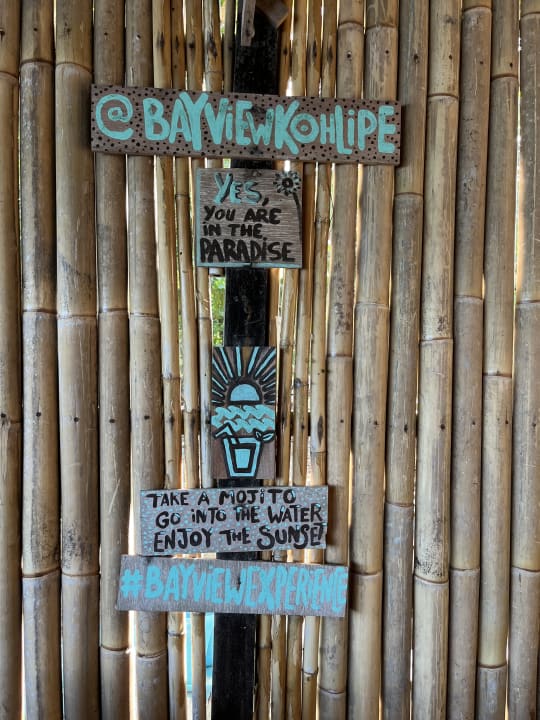 @BAYVIEWKOHLIPE
YES,
YOU ARE
IN THE
PARADISE
TAKE A MOJITO
GO INTO THE WATER
ENJOY THE SUNSET
#BAYVIEWEXPERIENCE